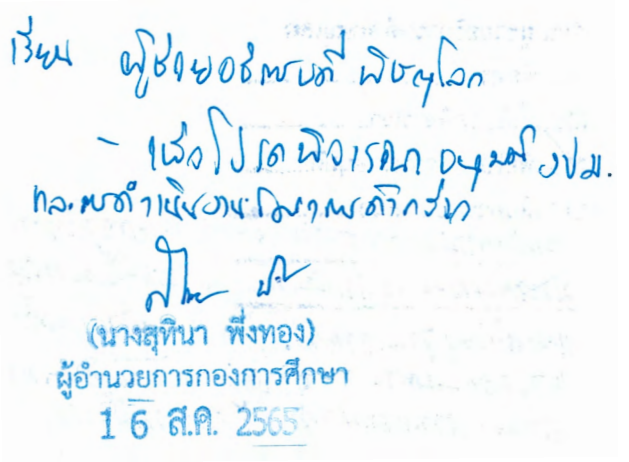 เรียน ผู้ช่วยอธิการบดี พิษณุโลก
- เพื่อโปรดพิจารณา อนุมัติ งปม.
และการดำเนินงานโครงการดังกล่าว
(นางสุทินา พึ่งทอง)
ผู้อำนวยการกองการศึกษา
16 ส.ค. 2565